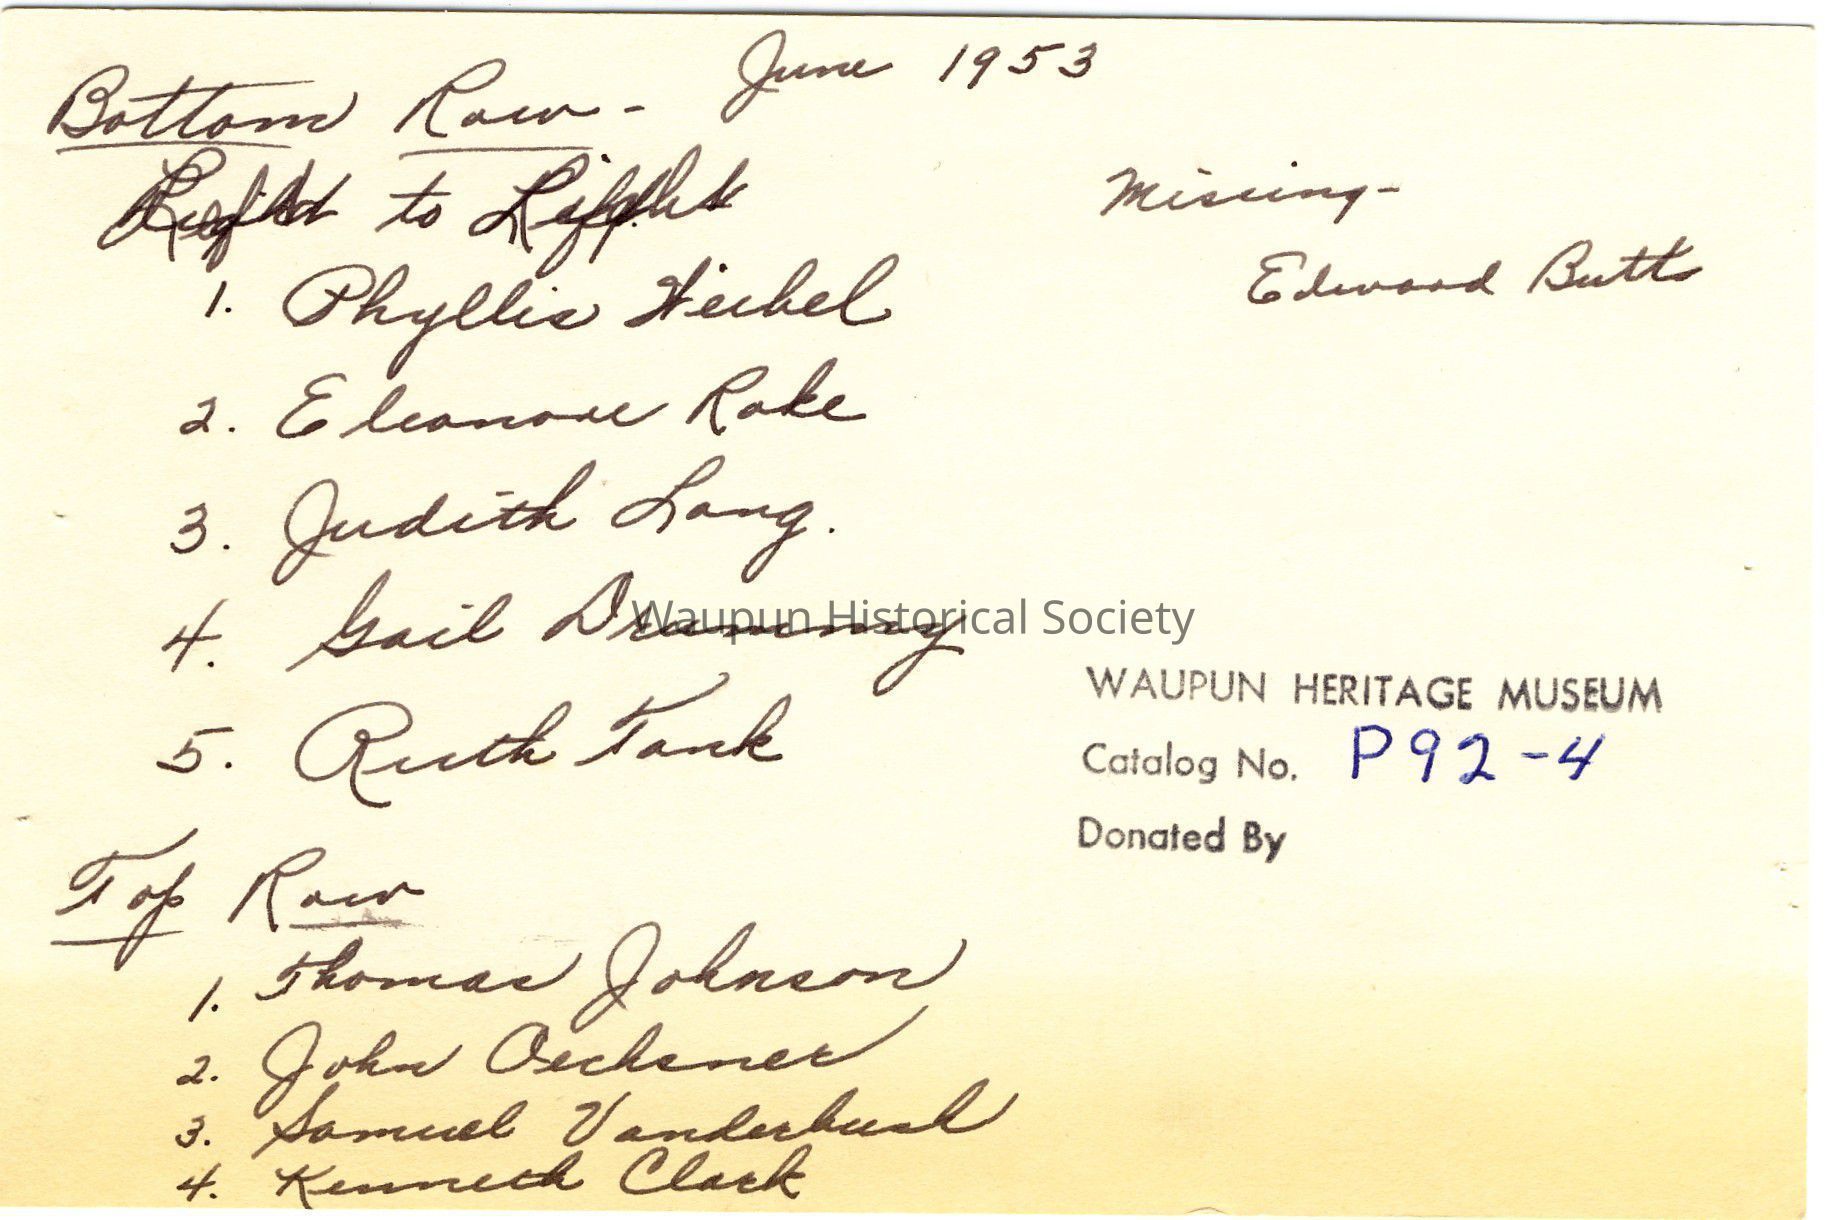 June 1953
Bottom Row -
to
1. Phyllis
2. Eleanore Rake
3. Judith Lang.
4. Gail Drummy
5. Ruth Tank
Top Row
1. Thomas Johnson
2. John Oechsner
3. Samuel Vanderbush
4. Kenneth Clark
Missing -
Edward Butts
Waupun Historical Society
WAUPUN HERITAGE MUSEUM
Catalog No. P92-4
Donated By